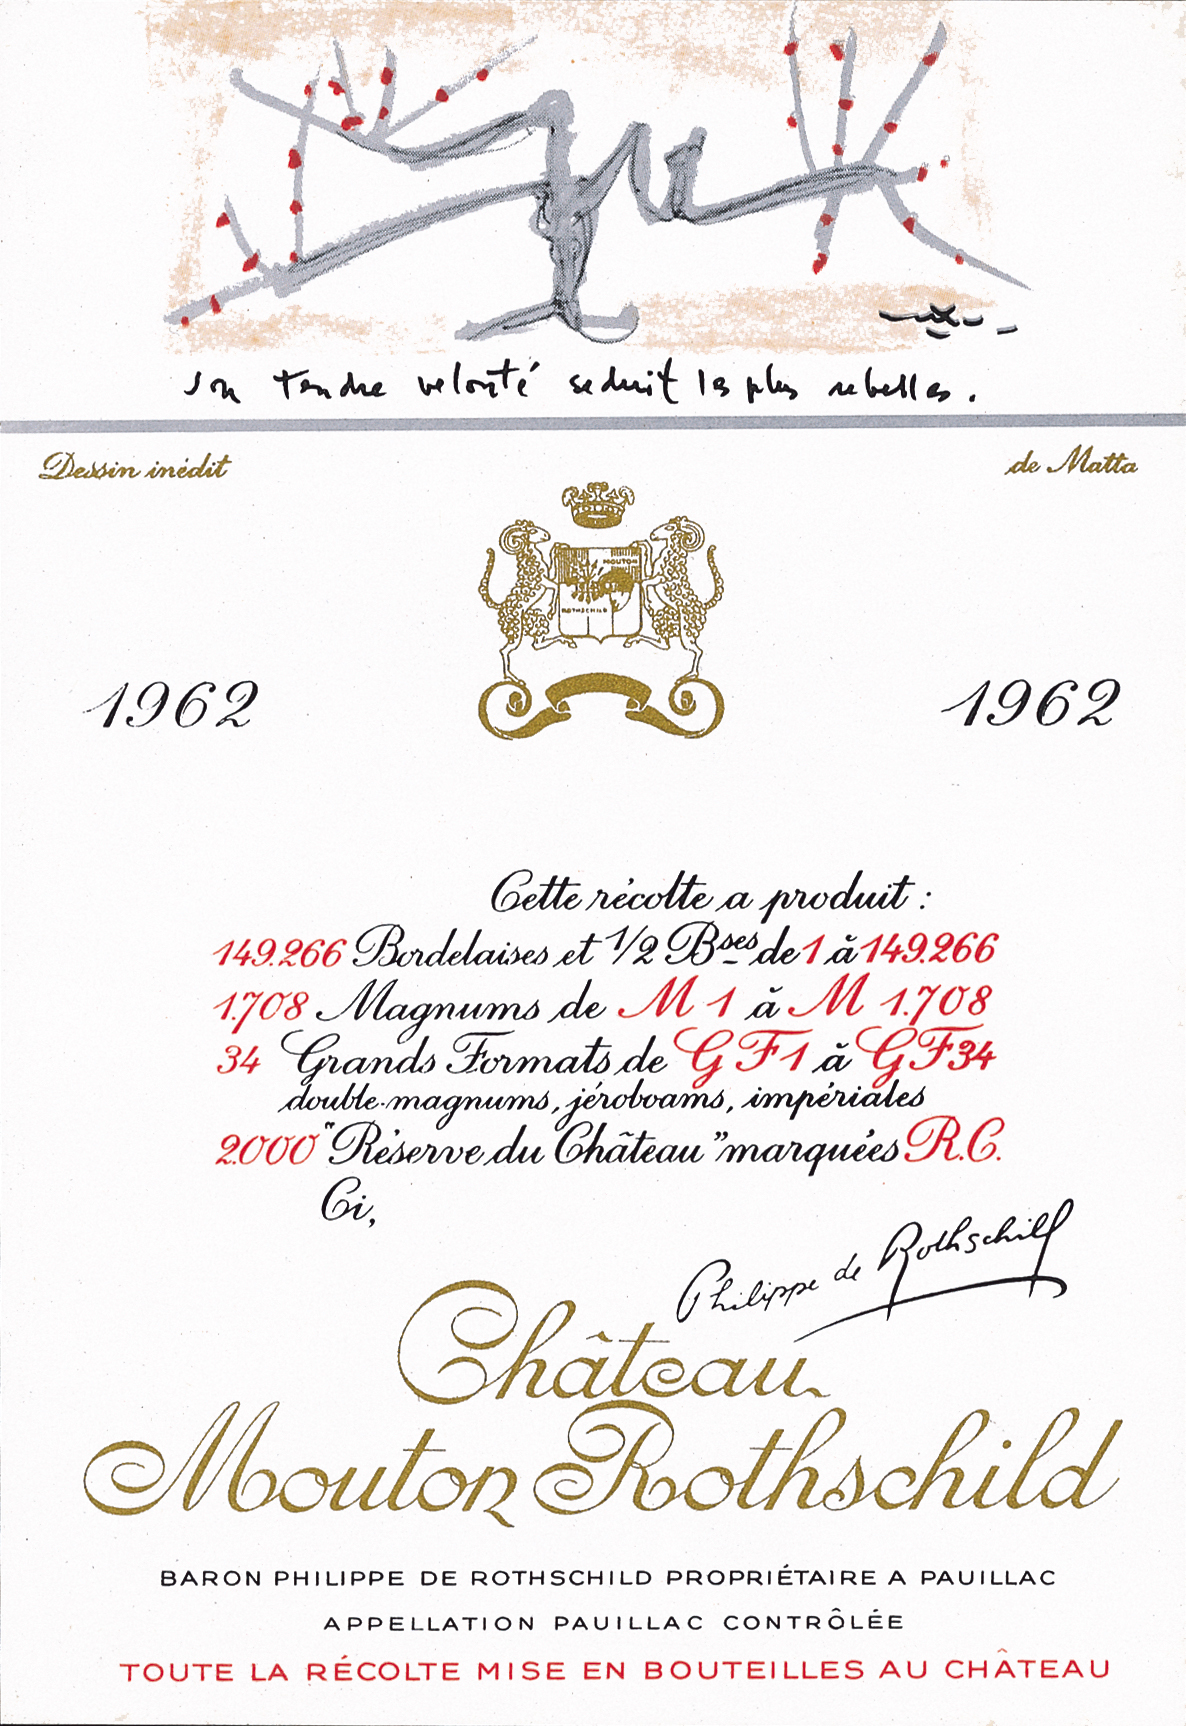 son tendre velouté séduit les plus rebelles.
Dessin inédit de Matta
MOUTON
ROTHSCHILD
1962 1962
Cette récolte a produit :
149.266 Bordelaises et 1/2 Bses de 1 à 149.266
1.708 Magnums de M 1 à M 1.708
34 Grands Formats de G F 1 à G F 34
double-magnums, jéroboams, impériales
2.000 "Réserve du Château" marquées R.C.
Ci,
Philippe de Rothschild
Château
Mouton Rothschild
BARON PHILIPPE DE ROTHSCHILD PROPRIÉTAIRE A PAUILLAC
APPELLATION PAUILLAC CONTRÔLÉE
TOUTE LA RÉCOLTE MISE EN BOUTEILLES AU CHÂTEAU